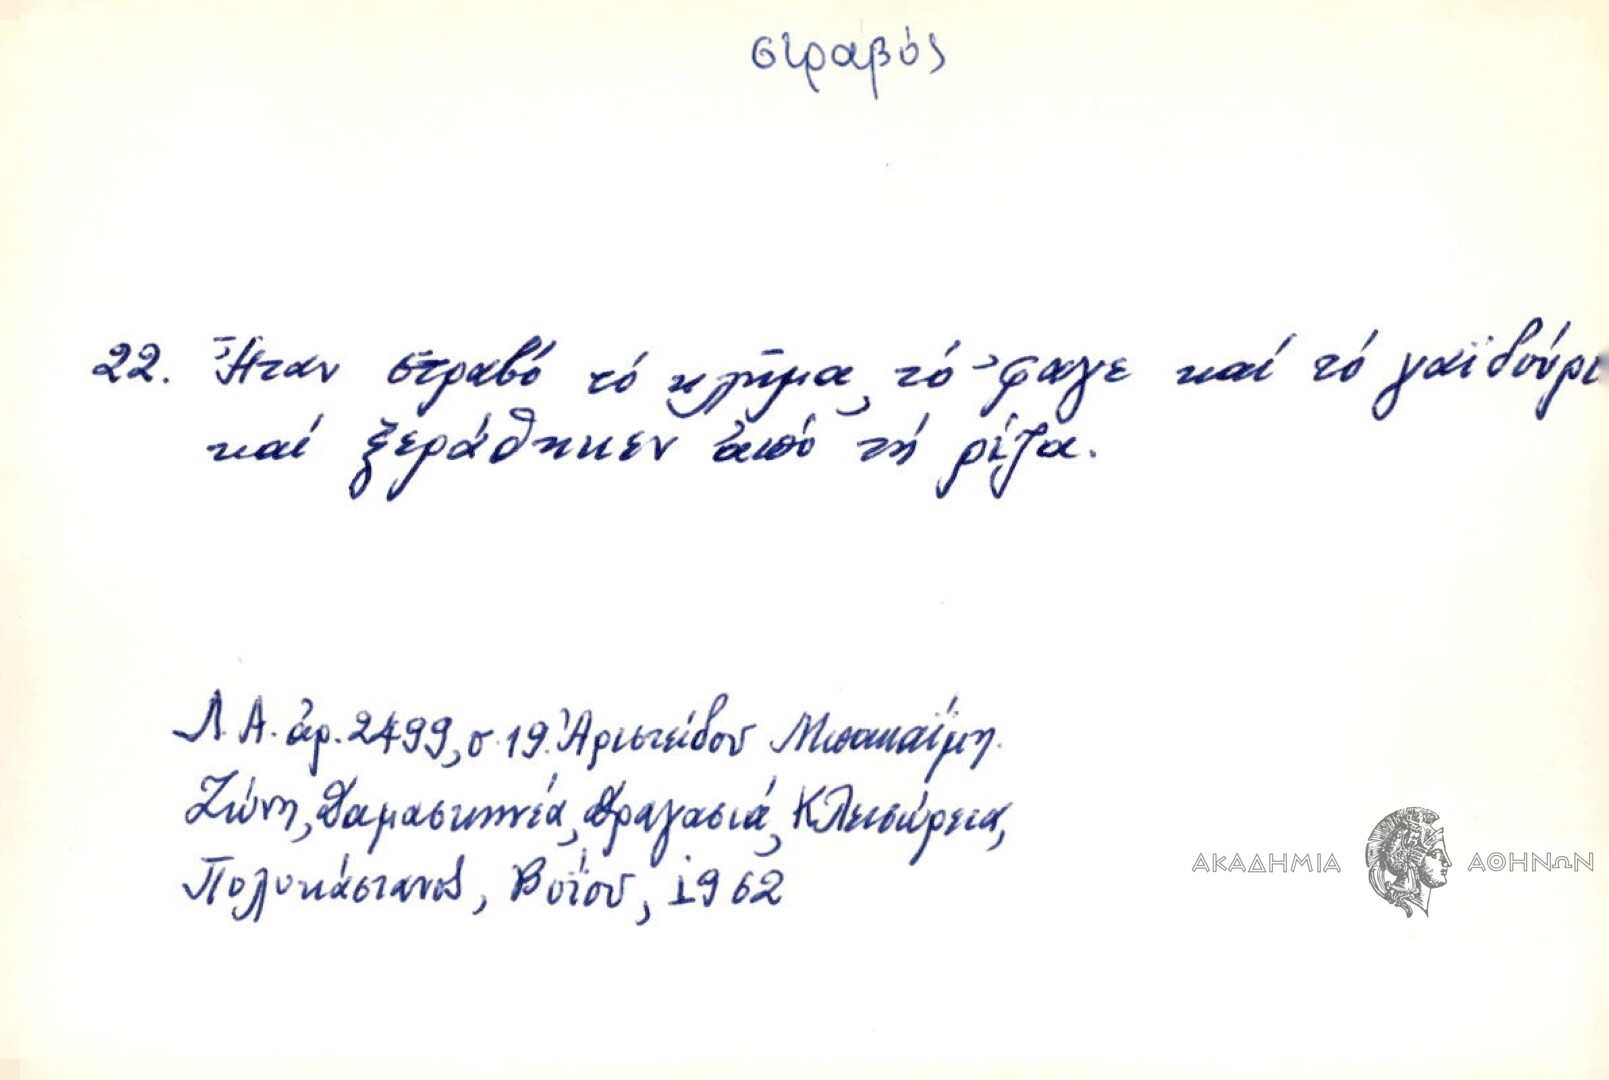 στραβός
22. Ἦταν στραβό τό κλῆμα, τό 'φαγε καί τό γαϊδούρι
καί ξεράθηκεν ἀπό τή ρίζα.
Λ.Α. ἀρ. 2499, σ. 19. Ἀριστείδου Μπακαΐμη.
Ζώνη, Δαμασκηνέα, Δραγασιά, Κλεισώρεια,
Πολυκάστανο, Βοΐου, 1962
ΑΚΑΔΗΜΙΑ ΑΘΗΝΩΝ